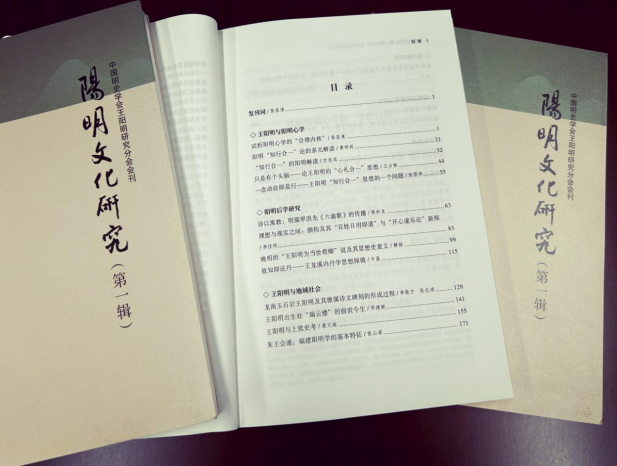 中国明史学会王阳明研究分会会刊
陽明文化研究
（第一辑）
目录 1
目 录
发刊词 / 张宪博 1
◇王阳明与阳明心学
试析阳明心学的“合理内核” / 1
阳明“知行合一”论的多义解读 / 21
“知行合一”的阳明解读 / 32
只是有个头脑——论王阳明的“心礼合一”思想 / 44
一念动处即是行——王阳明“知行合一”思想的一个问题 / 55
◇阳明后学研究
诗以寓教：明儒罗洪先《六谕歌》的传播 / 63
理想与现实之间：颜钧及其“百姓日用即道”与“开心遂乐论”新探
/ 83
晚明的“王阳明为当世荀卿”说及其思想史意义 / 解扬 99
致知即还丹——王龙溪内丹学思想探微 / 115
◇王阳明与地域社会
龙南玉石岩王阳明及其僚属诗文碑刻的形成过程 / 129
王阳明出生处“瑞云楼”的前世今生 / 141
王阳明与上犹史考 / 155
朱王会通：福建阳明学的基本特征 / 张山梁 171
中国明史学会王阳明研究分会会刊
陽明文化研究
（第一辑）